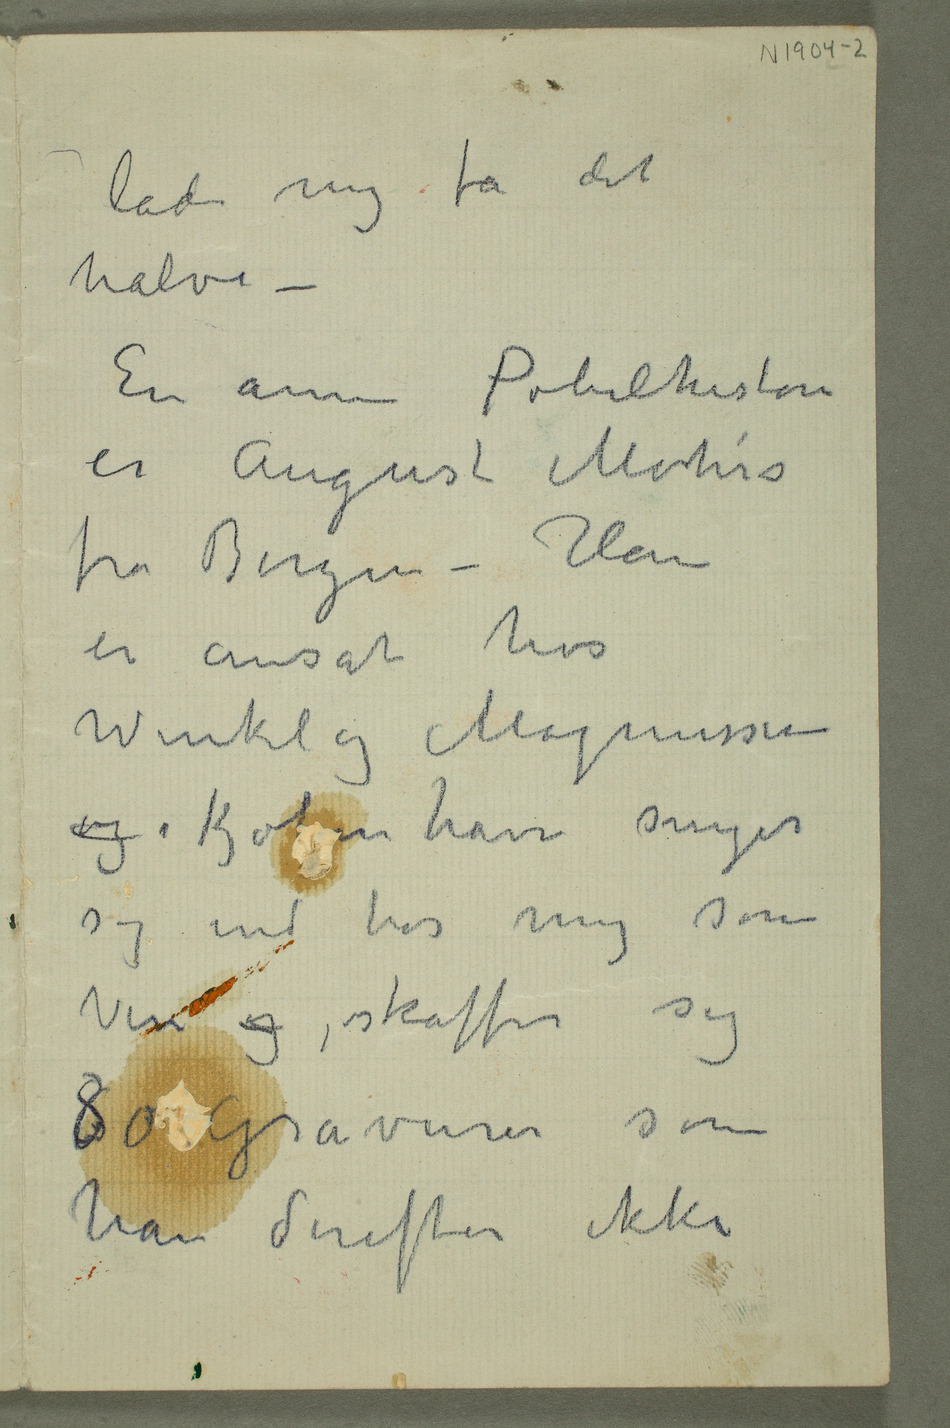 N1904-2
lad mig få det
halve –
En annen Pøbelhistorie
er August Mohrs
fra Bergen – Han
er ansat hos
Winkel og Magnussen
og i Kjøbenhavn sniger
sig ind hos mig som
Ven og, skaffer sig
80 Gravurer som
han derefter ikke